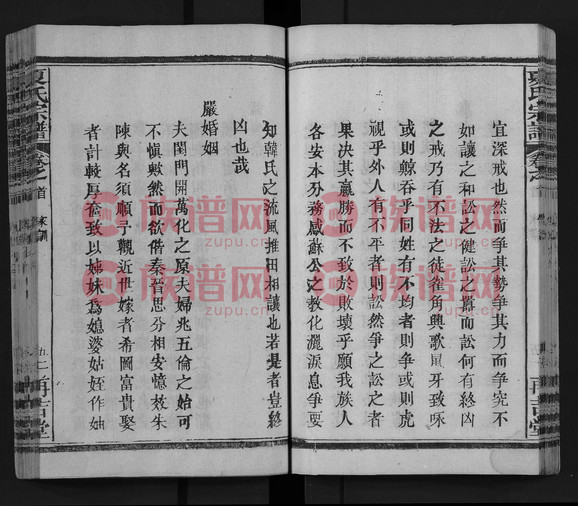 夏氏宗譜
卷之首
宜深戒也然而争其勢争其力而争究不
如讓之和訟之健訟之囂而訟何有終凶
之戒乃有不法之徒雀角興歌鼠牙致咏
或則鯨吞乎同姓有不均者則争或則虎
視乎外人有不平者則訟然争之訟之者
果決其贏勝而不致於敗壞乎願我族人
各安本外務感蘇公之教化灑淚息争要
知韓氏之流風推田相讓也若是者豈終
凶也哉
嚴婚姻
夫閨門開萬化之原夫婦兆五倫之始可
不慎歟然而欲偕秦晉思分相安憶效朱
陳與名須順乎觀近世嫁者希圖富貴娶
者計較厚奩致以姊妹為媳婆姑姪作妯
夏氏宗譜
卷之首
家訓
再言堂
族谱网
zupu.cn